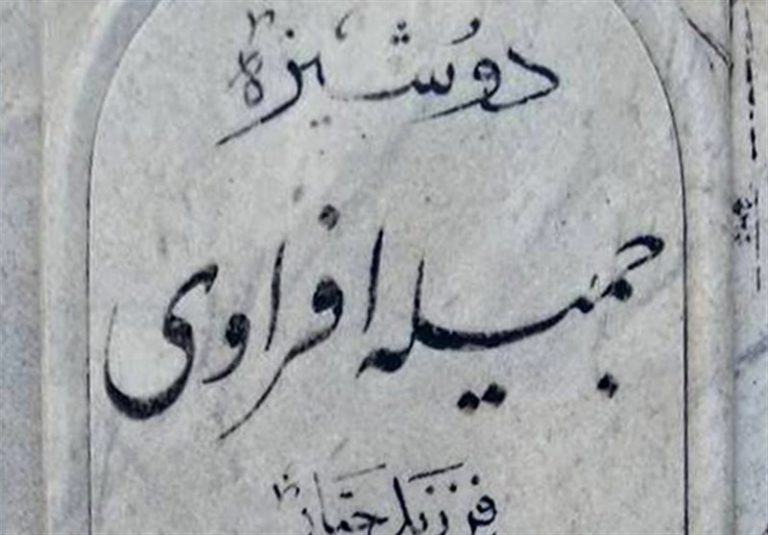 دوشیزه
جمیله افراوی
فرزند